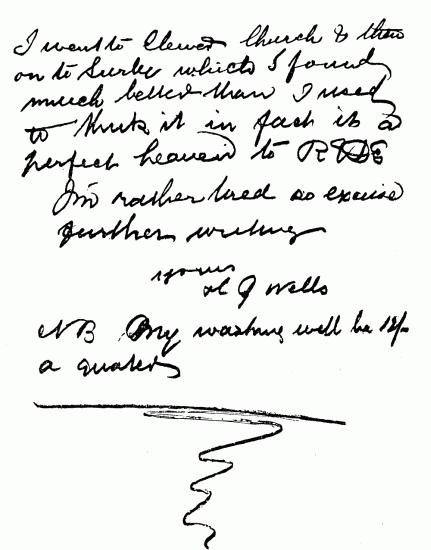 I went to Clewer Church & then
on to Surley which I found
much better than I used
to think it in fact it is a
perfect heaven to R&DE
I'm rather tired so excuse
further writing
yours
H G Wells
NB My washing will be 12/-
a quarter